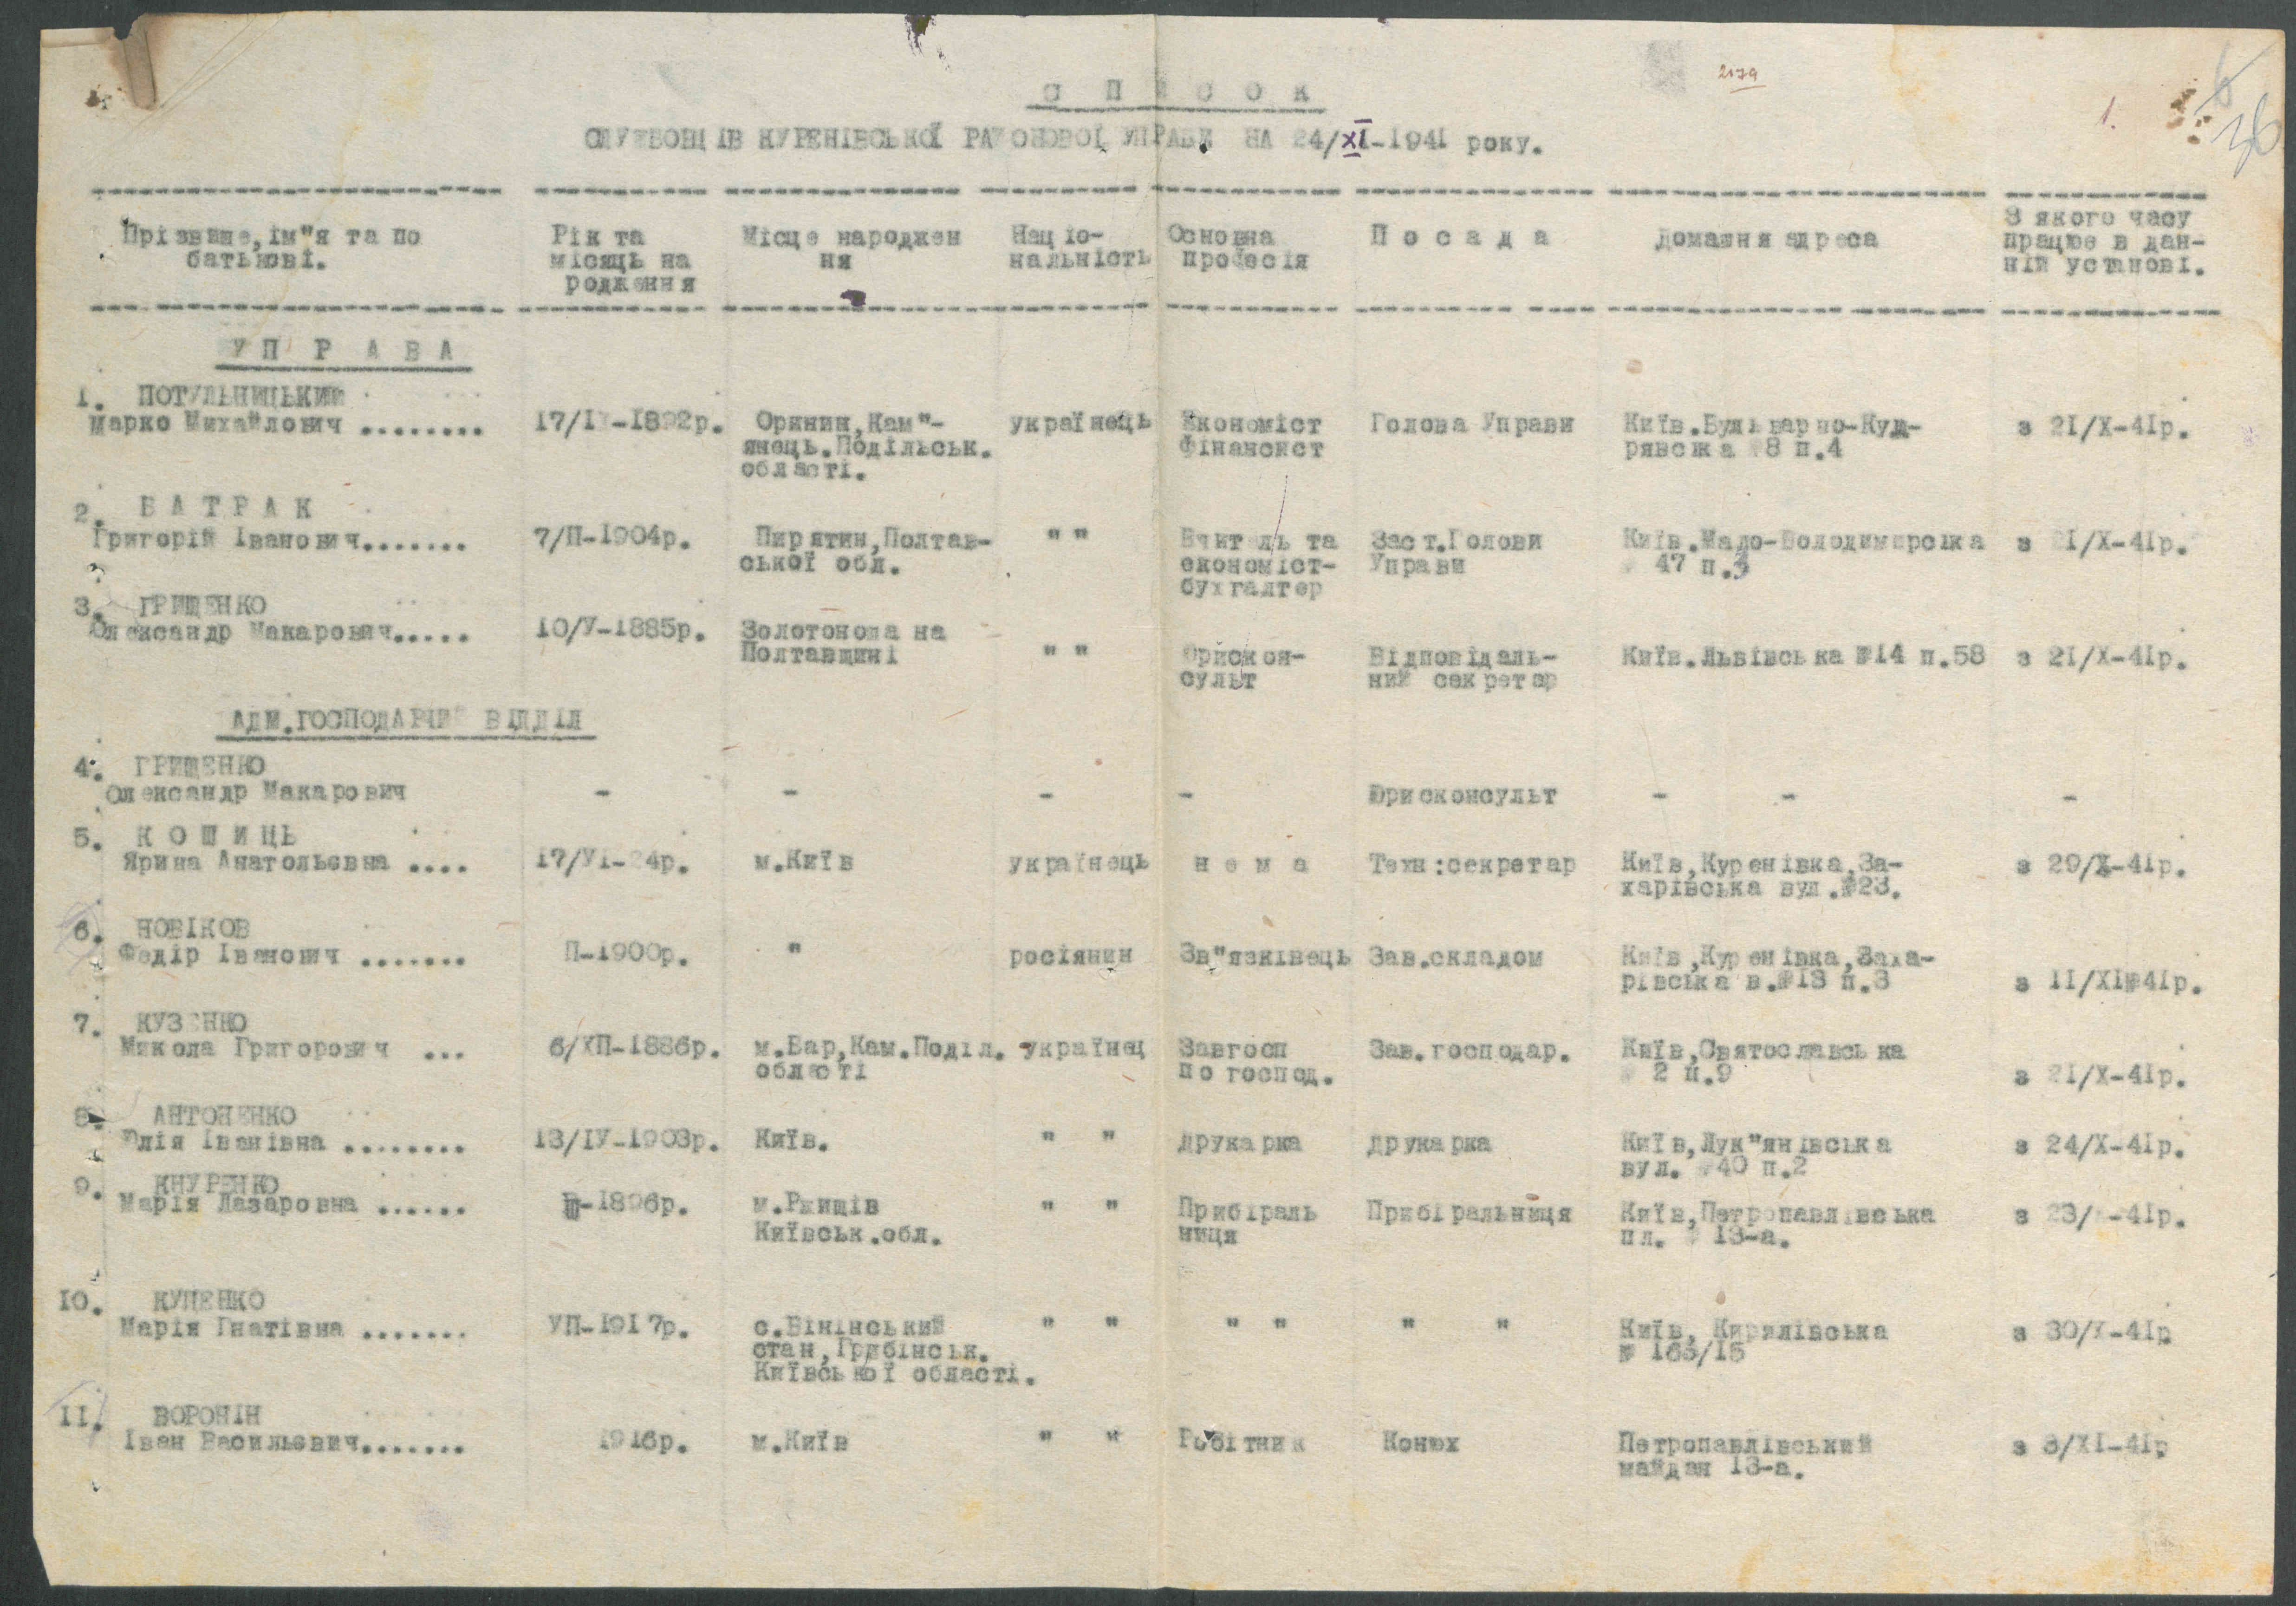 2179
1.
36
С П И С О К
СЛУЖБОВЦІВ КУРЕНІВСЬКОЇ РАЙОНОВОЇ УПРАВИ НА 24/XI-1941 року.
Прізвище,ім"я та по батькові. Рік та місяць на родження Місце народжен ня Націо- нальність Основна професія П о с а д а Домашня адреса З якого часу працює в дан- ній установі.
У П Р А В А
1. ПОТУЛЬНИЦЬКИЙ
Марко Михайлович ........ 17/ -1892р. Оринин,Кам"- українець Економіст Голова Управи Київ.Бульварно-Куд- з 21/X-41р.
янець.Подільськ. Фінансист рявська №8 п.4
області.
2. БАТРАК
Григорій Іванович....... 7/П-1904р. Пирятин,Полтав- " " Вчитель та Заст.Голови Київ.Мало-Володимирська з 21/X-41р.
ської обл. економіст- Управи № 47 п.3
бухгалтер
3. ГРИЩЕНКО
Олександр Макарович..... 10/У-1885р. Золотоноша на
Полтавщині " " Юрискон- Відповідаль- Київ.Львівська №14 п.58 з 21/X-41р.
сульт ний секретар
АДМ.ГОСПОДАРЧИЙ ВІДДІЛ
4. ГРИЩЕНКО
Олександр Макарович - - - - Юрисконсульт - - -
5. К О Ш И Ц Ь
Ярина Анатольєвна .... 17/УІ-24р. м.Київ українець н е м а Техн:секретар Київ,Куренівка,За- з 29/X-41р.
харівська вул.№23.
6. НОВІКОВ
Федір Іванович ....... П-1900р. " росіянин Зв"язківець Зав.складом Київ,Куренівка,Заха-
рівська в.№13 п.3 з 11/XI-41р.
7. КУЗЕНКО
Микола Григорович ... 6/ХП-1886р. м.Бар,Кам.Поділ. українец Завгосп Зав.господар. Київ,Святославська
області по господ. № 2 п.9 з 21/X-41р.
8. АНТОНЕНКО
Юлія Іванівна ........ 13/ІУ-1903р. Київ. " " друкарка друкарка Київ,Лук"янівська з 24/X-41р.
вул. №40 п.2
9. КНУРЕНКО
Марія Лазаровна ...... Ш-1896р. м.Ржищів " " Прибіраль Прибіральниця Київ,Петропавлівська з 23/ -41р.
Київськ.обл. ниця пл. № 13-а.
10. КУЦЕНКО
Марія Гнатівна ....... УП-1917р. с.Вінінський " " " " " " Київ, Кирилівська з 30/X-41р
стан,Грибінськ. № 163/15
Київської області.
11. ВОРОНІН
Іван Васильєвич....... 1916р. м.Київ " " Робітник Конюх Петропавлівський з 3/XI-41р
майдан 13-а.